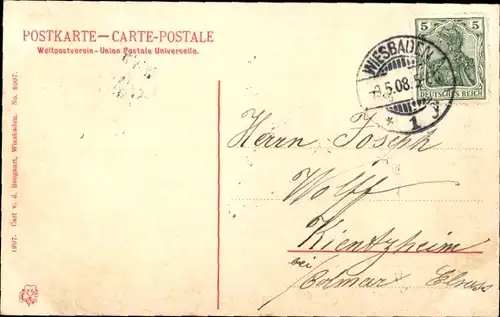 POSTKARTE—CARTE-POSTALE
Weltpostverein - Union Postale Universelle.
5 5
DEUTSCHES REICH
WIESBADEN
5.08.
* 1 y
Herrn Joseph
Wolff
Kientzheim
bei
Colmar Elsass
1907. Carl v. d. Boogaart, Wiesbaden. No.